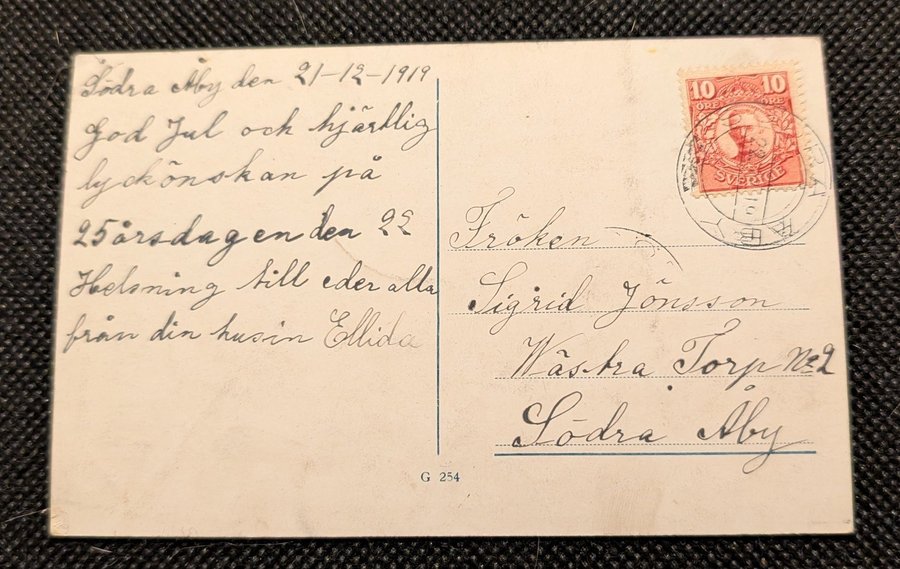 Södra Åby den 21-12-1919
God Jul och hjärtlig
lyckönskan på
25årsdagen den 22
Helsning till eder alla
från din kusin Ellida
10 10
ÖRE ÖRE
SVERIGE
Fröken
Sigrid Jönsson
Wästra Torp No 2
Södra Åby
G 254